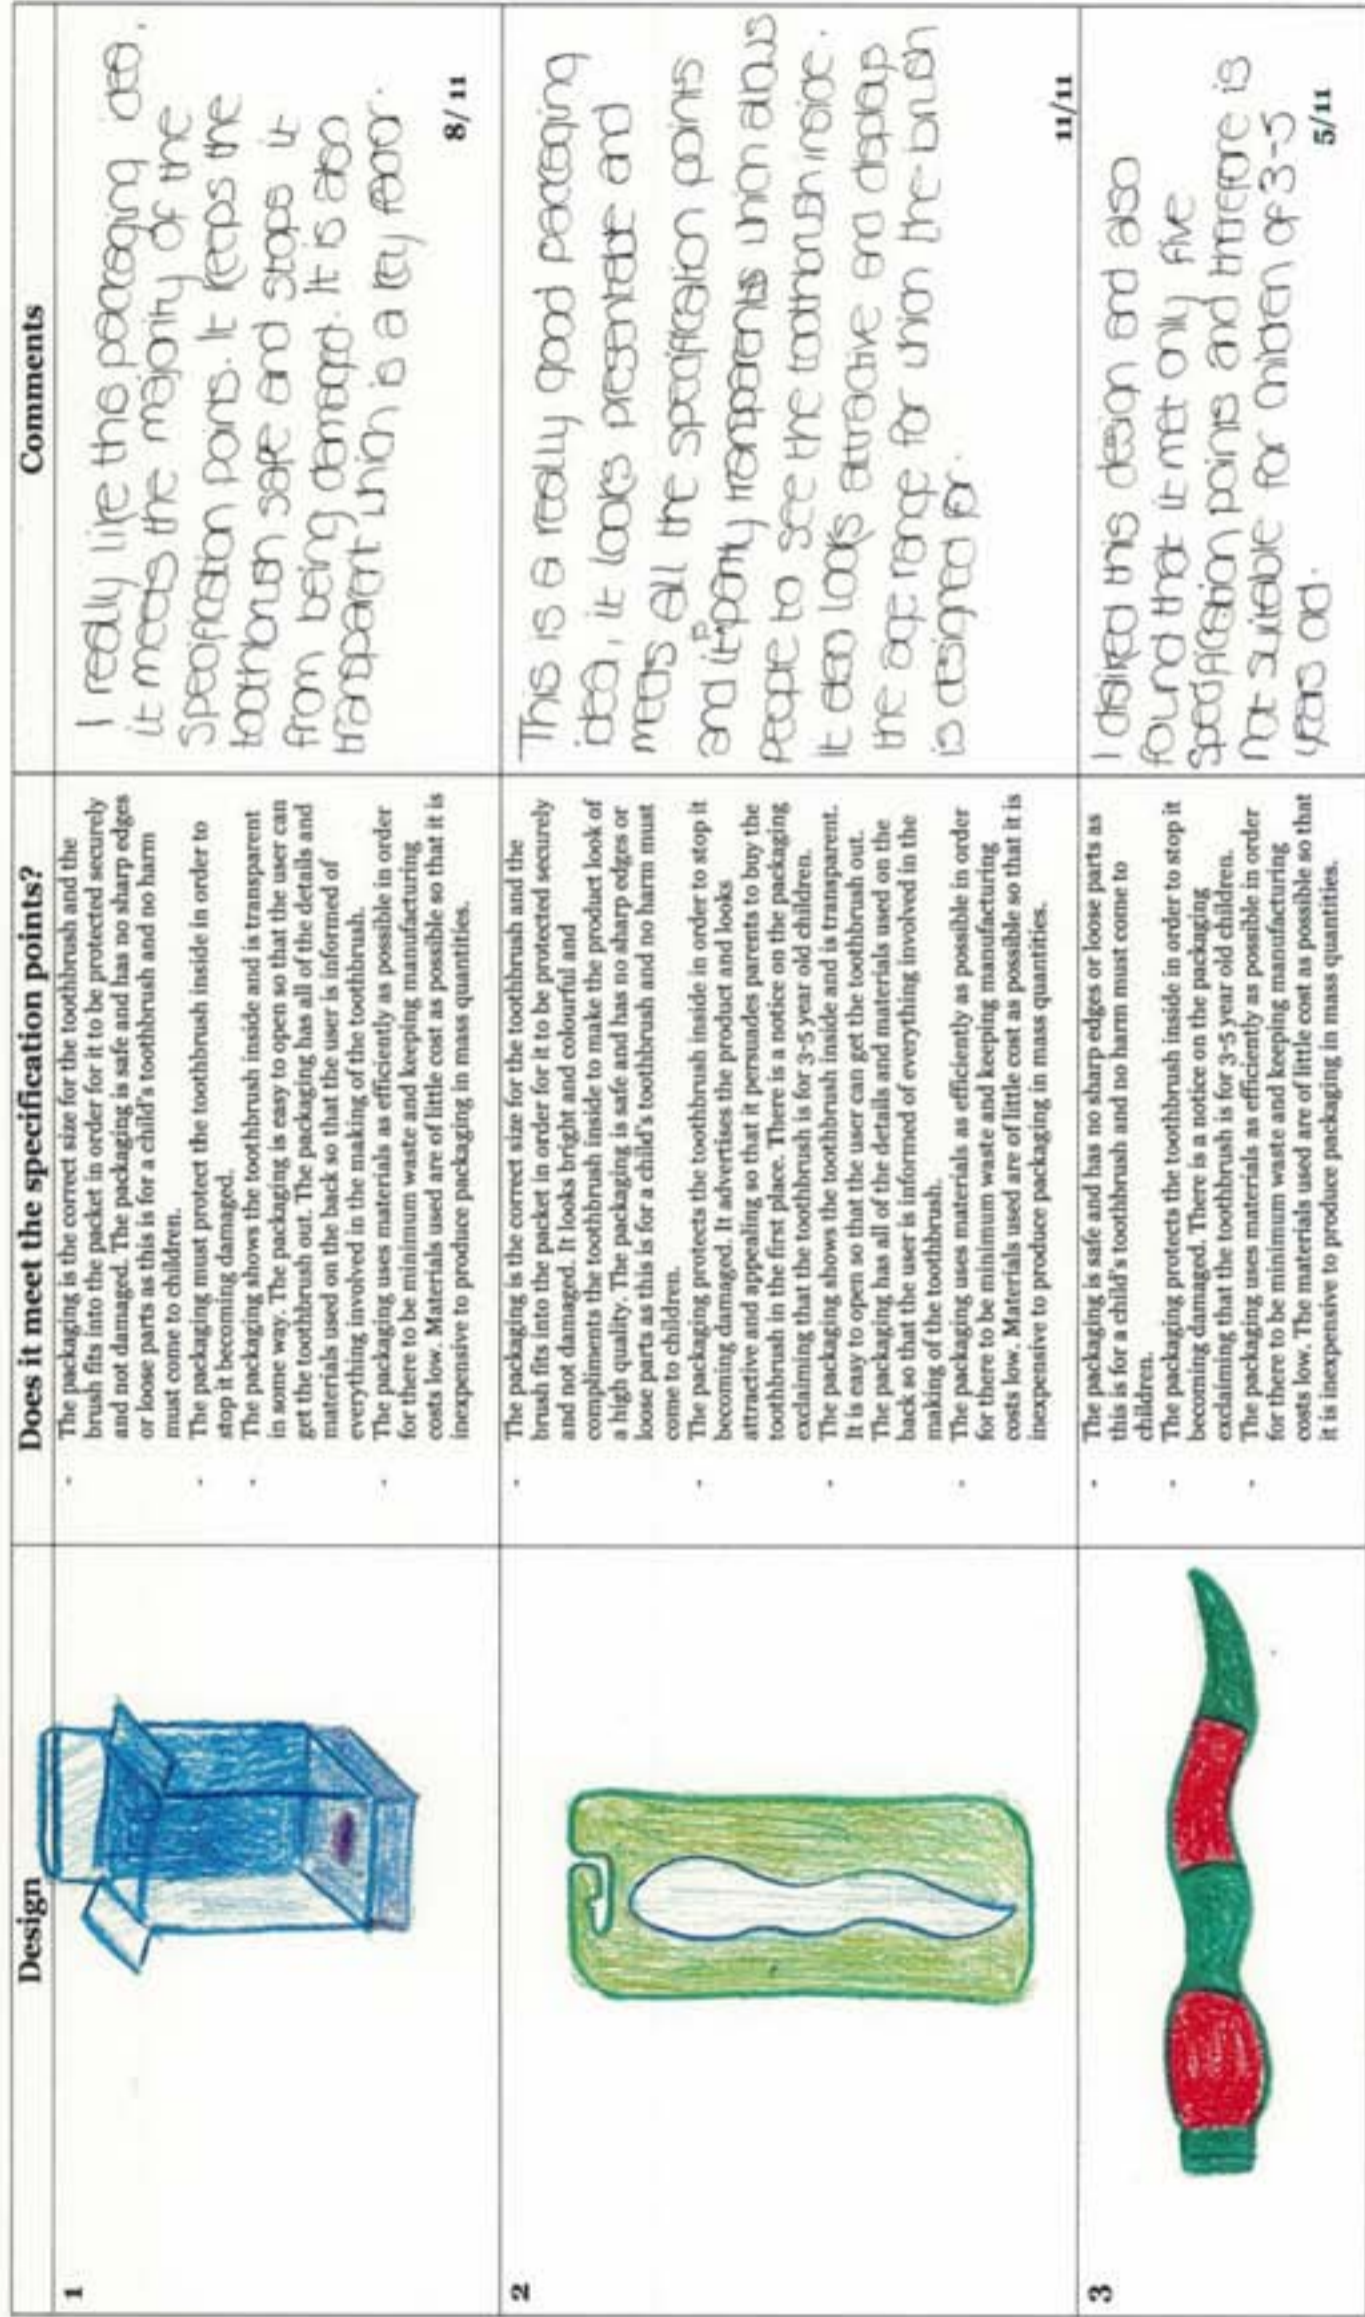 Design
Does it meet the specification points?
Comments
1
- The packaging is the correct size for the toothbrush and the
brush fits into the packet in order for it to be protected securely
and not damaged. The packaging is safe and has no sharp edges
or loose parts as this is for a child's toothbrush and no harm
must come to children.
- The packaging must protect the toothbrush inside in order to
stop it becoming damaged.
- The packaging shows the toothbrush inside and is transparent
in some way. The packaging is easy to open so that the user can
get the toothbrush out. The packaging has all of the details and
materials used on the back so that the user is informed of
everything involved in the making of the toothbrush.
- The packaging uses materials as efficiently as possible in order
for there to be minimum waste and keeping manufacturing
costs low. Materials used are of little cost as possible so that it is
inexpensive to produce packaging in mass quantities.
I really like this packaging idea,
it meets the majority of the
specification points. It keeps the
toothbrush safe and stops it
from being damaged. It is also
transparent which is a key factor.
8/11
2
- The packaging is the correct size for the toothbrush and the
brush fits into the packet in order for it to be protected securely
and not damaged. It looks bright and colourful and
compliments the toothbrush inside to make the product look of
a high quality. The packaging is safe and has no sharp edges or
loose parts as this is for a child's toothbrush and no harm must
come to children.
- The packaging protects the toothbrush inside in order to stop it
becoming damaged. It advertises the product and looks
attractive and appealing so that it persuades parents to buy the
toothbrush in the first place. There is a notice on the packaging
exclaiming that the toothbrush is for 3-5 year old children.
- The packaging shows the toothbrush inside and is transparent.
It is easy to open so that the user can get the toothbrush out.
The packaging has all of the details and materials used on the
back so that the user is informed of everything involved in the
making of the toothbrush.
- The packaging uses materials as efficiently as possible in order
for there to be minimum waste and keeping manufacturing
costs low. Materials used are of little cost as possible so that it is
inexpensive to produce packaging in mass quantities.
This is a really good packaging
idea, it looks presentable and
meets all the specification points
and it is partly transparents which allows
people to see the toothbrush inside.
It also looks attractive and displays
the age range for which the brush
is designed for.
11/11
3
- The packaging is safe and has no sharp edges or loose parts as
this is for a child's toothbrush and no harm must come to
children.
- The packaging protects the toothbrush inside in order to stop it
becoming damaged. There is a notice on the packaging
exclaiming that the toothbrush is for 3-5 year old children.
- The packaging uses materials as efficiently as possible in order
for there to be minimum waste and keeping manufacturing
costs low. The materials used are of little cost as possible so that
it is inexpensive to produce packaging in mass quantities.
I disliked this design and also
found that it met only five
specification points and therefore is
not suitable for children of 3-5
years old.
5/11